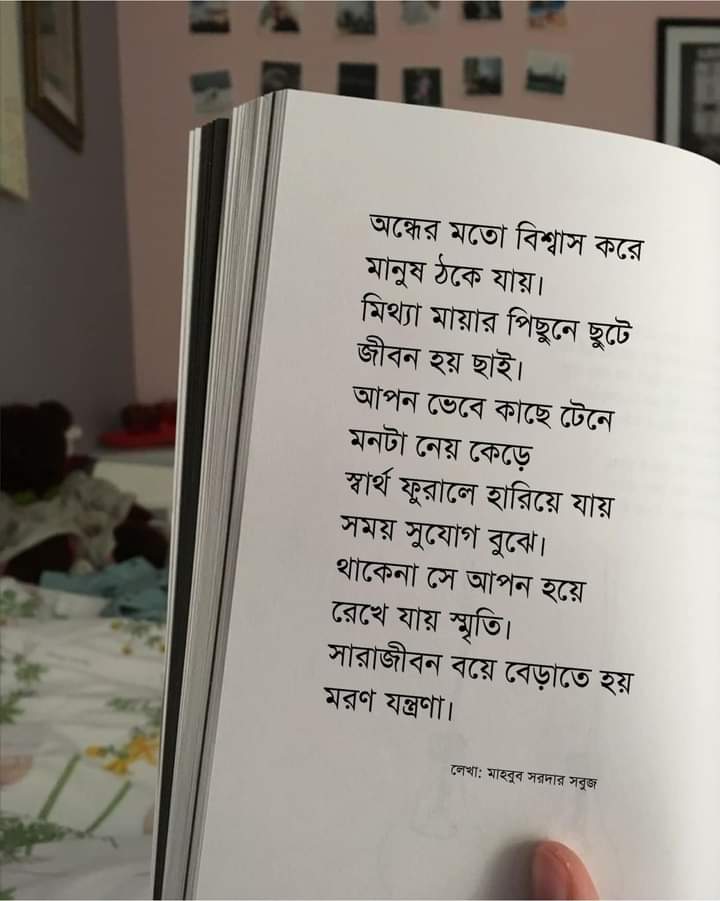 অন্ধের মতো বিশ্বাস করে
মানুষ ঠকে যায়।
মিথ্যা মায়ার পিছুনে ছুটে
জীবন হয় ছাই।
আপন ভেবে কাছে টেনে
মনটা নেয় কেড়ে
স্বার্থ ফুরালে হারিয়ে যায়
সময় সুযোগ বুঝে।
থাকেনা সে আপন হয়ে
রেখে যায় স্মৃতি।
সারাজীবন বয়ে বেড়াতে হয়
মরণ যন্ত্রণা।
লেখা: মাহবুব সরদার সবুজ